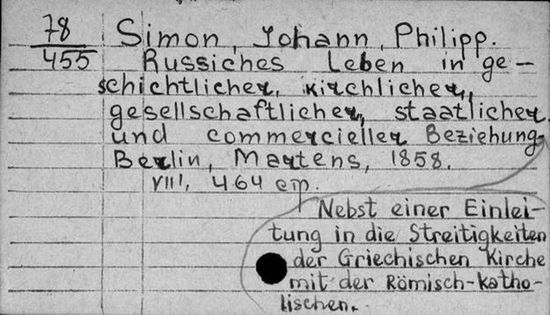 78
455
Simon, Johann, Philipp.
Russiches Leben in ge-
schichtlicher, kirchlicher,
gesellschaftlicher, staatlicher
und commercieller Beziehung.
Berlin, Martens, 1858.
VIII, 464 стр.
Nebst einer Einlei-
tung in die Streitigkeiten
der Griechischen Kirche
mit der Römisch-katho-
lischen.